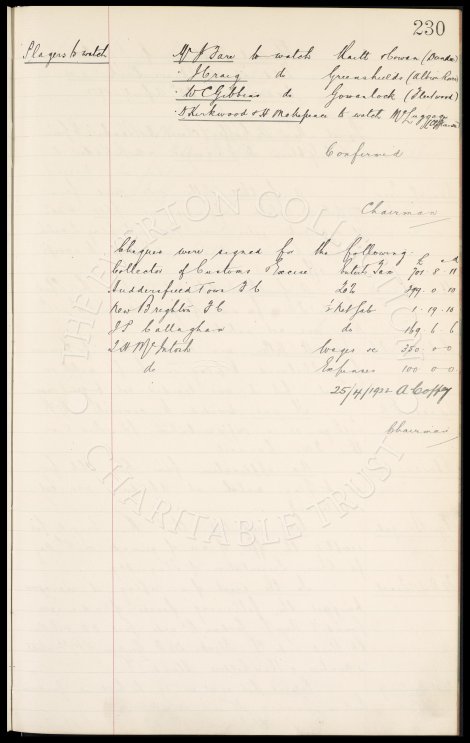 230
Players to watch Mr J Bare to watch Raitt & Cowan (Dundee)
" J Craig do Greenshields (Albion Rovers)
" W C Gibbins do Gowanlock (Fleetwood)
" D Kirkwood & H Makepeace to watch McLuggage
Confirmed
Chairman
Cheques were signed for the following.
£ s d
Collector of Customs & Excise Entert Tax 701 . 8 . 11
Huddersfield Town F C 399 . 0 . 10
New Brighton F C 1 . 19 . 10
J P Callaghan do 169 6 6
T H McIntosh Wages &c 350 . 0 . 0
do Expenses 100 0 0
25/4/1922 A Coffey
Chairman
THE EVERTON COLLECTION
CHARITABLE TRUST